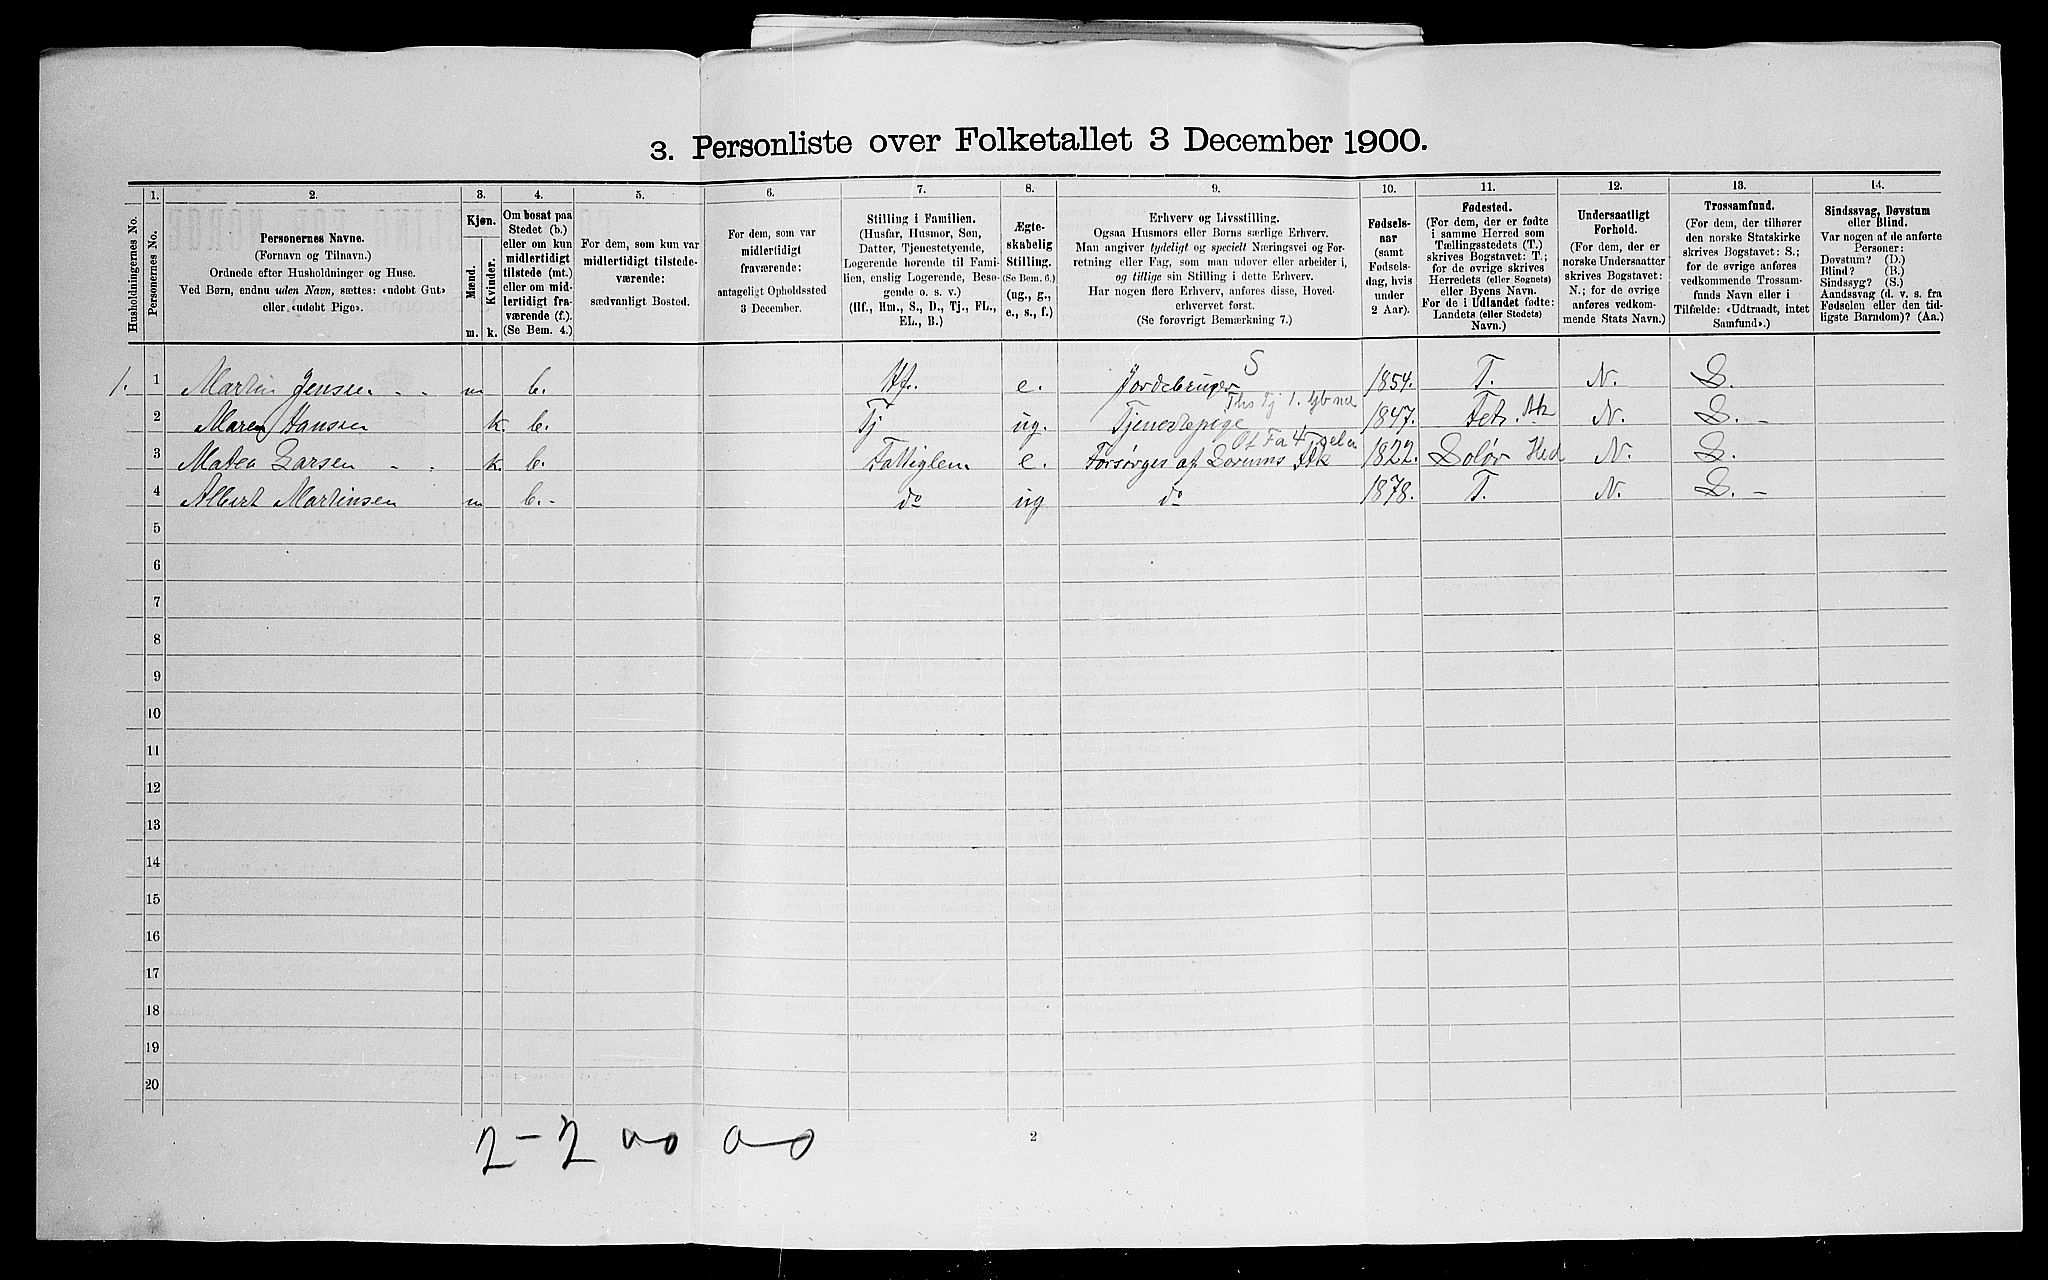 3. Personliste over Folketallet 3 December 1900.
Husholdningernes No.
1.
Personernes No.
2.
Personernes Navne.
(Fornavn og Tilnavn.)
Ordnede efter Husholdninger og Huse.
Ved Børn, endnu uden Navn, sættes: «udøbt Gut»
eller «udøbt Pige».
3.
Kjøn.
Mænd.
Kvinder.
m. k.
4.
Om bosat paa
Stedet (b.)
eller om kun
midlertidigt
tilstede (mt.)
eller om mid-
lertidigt fra-
værende (f.).
(Se Bem. 4.)
5.
For dem, som kun var
midlertidigt tilstede-
værende:
sædvanligt Bosted.
6.
For dem, som var
midlertidigt
fraværende:
antageligt Opholdssted
3 December.
7.
Stilling i Familien.
(Husfar, Husmor, Søn,
Datter, Tjenestetyende,
Logerende hørende til Fami-
lien, enslig Logerende, Besø-
gende o. s. v.)
(Hf., Hm., S., D., Tj., FL.,
EL., B.)
8.
Ægte-
skabelig
Stilling.
(Se Bem. 6.)
(ug., g.,
e., s., f.)
9.
Erhverv og Livsstilling.
Ogsaa Husmors eller Børns særlige Erhverv.
Man angiver tydeligt og specielt Næringsvei og For-
retning eller Fag, som man udøver eller arbeider i,
og tillige sin Stilling i dette Erhverv.
Har nogen flere Erhverv, anføres disse, Hoved-
erhvervet først.
(Se forøvrigt Bemærkning 7.)
10.
Fødsels-
aar
(samt
Fødsels-
dag, hvis
under
2 Aar).
11.
Fødested.
(For dem, der er fødte
i samme Herred som
Tællingsstedets (T.)
skrives Bogstavet: T.;
for de øvrige skrives
Herredets (eller Sognets)
eller Byens Navn.
For de i Udlandet fødte:
Landets (eller Stedets)
Navn.)
12.
Undersaatligt
Forhold.
(For dem, der er
norske Undersaatter
skrives Bogstavet:
N.; for de øvrige
anføres vedkom-
mende Stats Navn.)
13.
Trossamfund.
(For dem, der tilhører
den norske Statskirke
skrives Bogstavet: S.;
for de øvrige anføres
vedkommende Trossam-
funds Navn eller i
Tilfælde: «Udtraadt, intet
Samfund».)
14.
Sindssvag, Døvstum
eller Blind.
Var nogen af de anførte
Personer:
Døvstum? (D.)
Blind? (B.)
Sindssyg? (S.)
Aandssvag (d. v. s. fra
Fødselen eller den tid-
ligste Barndom)? (Aa.)
1. 1 Martin Jensen - - m b. Hf. e. Jordebruger S 1854. T. N. S.
2 Maren Hansen k. b. Tj ug. Tjenestepige 1847. Fet. Ak N. S. -
3 Matea Larsen - - k. b. Fattiglem e. Forsørges af Sørums Ftk 1822. Solør Hed N. S.
4 Albert Martinsen m b. - do ug do 1878. T. N. S. -
5
6
7
8
9
10
11
12
13
14
15
16
17
18
19
20
2 - 2 00 0 - 0
2